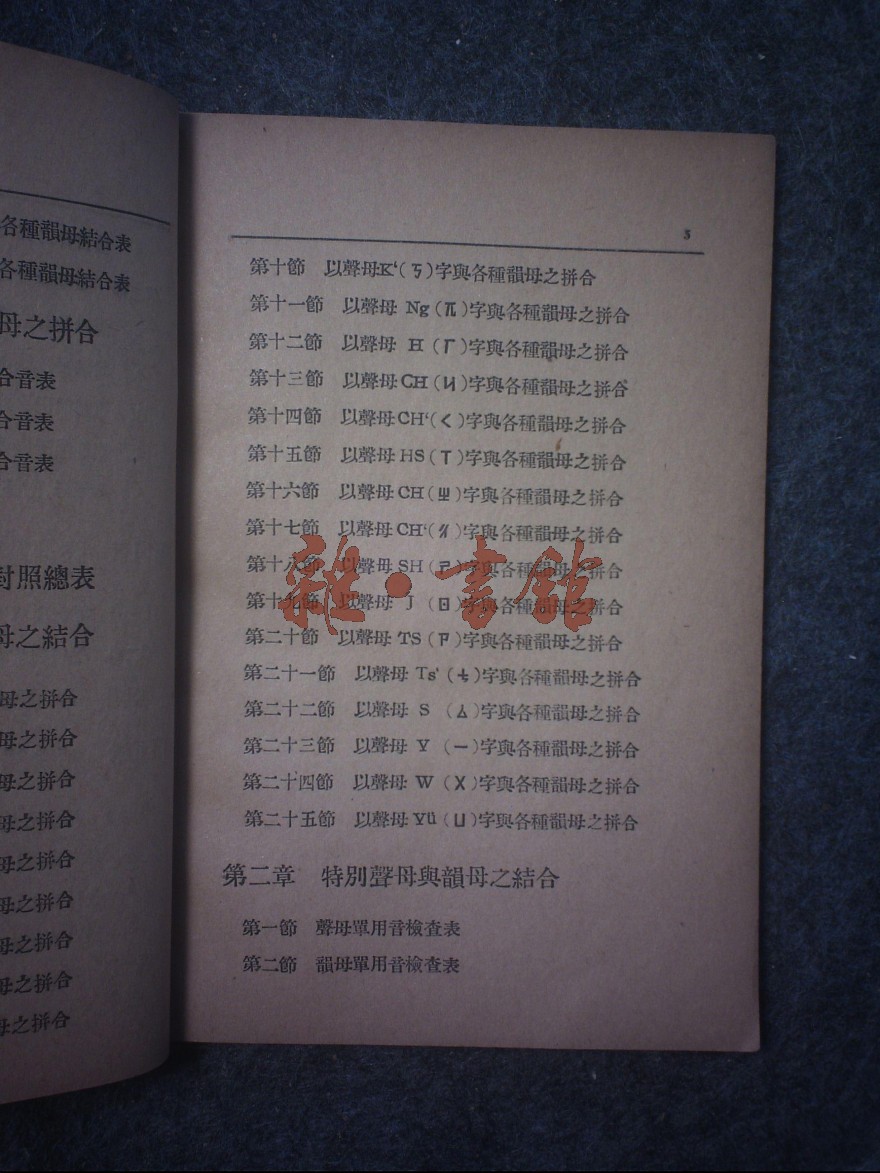 各種韻母結合表
各種韻母結合表
母之拼合
合音表
合音表
合音表
對照總表
母之結合
母之拼合
母之拼合
母之拼合
母之拼合
母之拼合
母之拼合
母之拼合
母之拼合
母之拼合
3
第十節 以聲母K‘(ㄎ)字與各種韻母之拼合
第十一節 以聲母 Ng (兀)字與各種韻母之拼合
第十二節 以聲母 H (ㄏ)字與各種韻母之拼合
第十三節 以聲母 CH (ㄐ)字與各種韻母之拼合
第十四節 以聲母 CH‘(ㄑ)字與各種韻母之拼合
第十五節 以聲母 HS (ㄒ)字與各種韻母之拼合
第十六節 以聲母 CH (ㄓ)字與各種韻母之拼合
第十七節 以聲母 CH‘(ㄔ)字與各種韻母之拼合
第十八節 以聲母 SH (ㄕ)字與各種韻母之拼合
第十九節 以聲母 J (ㄖ)字與各種韻母之拼合
第二十節 以聲母 TS (ㄗ)字與各種韻母之拼合
第二十一節 以聲母 Ts‘ (ㄘ)字與各種韻母之拼合
第二十二節 以聲母 S (ㄙ)字與各種韻母之拼合
第二十三節 以聲母 Y (一)字與各種韻母之拼合
第二十四節 以聲母 W (ㄨ)字與各種韻母之拼合
第二十五節 以聲母 Yü (ㄩ)字與各種韻母之拼合
第二章 特別聲母與韻母之結合
第一節 聲母單用音檢查表
第二節 韻母單用音檢查表
雜·書館